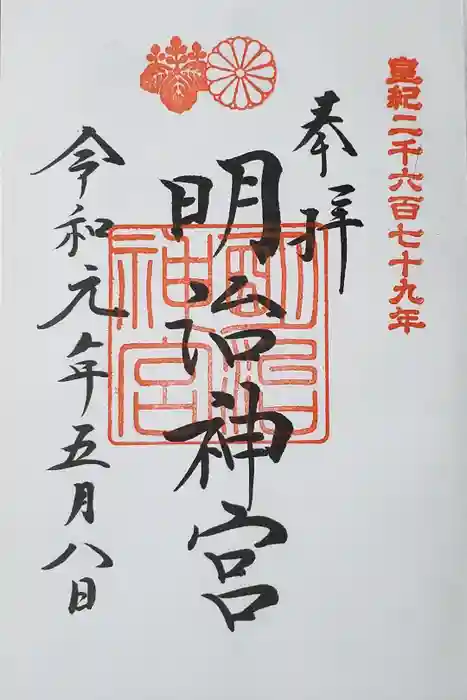 皇紀二千六百七十九年
奉拝
明治神宮
明治神宮
令和元年五月八日